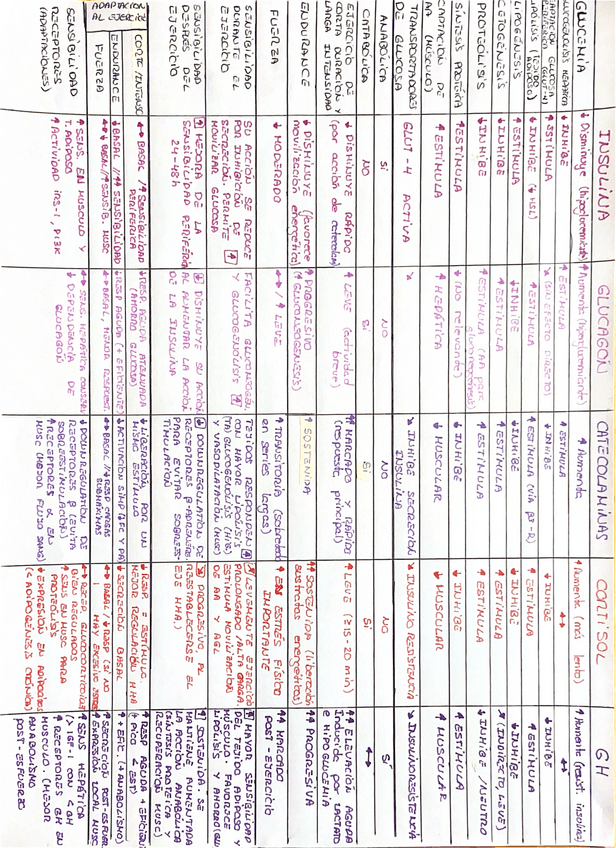 INSULINA
GLUCAGON
CATECOLAMINAS
CORTISOL
GH
GLUCEMIA
↓ Disminuye (hipoglucemiante)
↑ Aumenta (hiperglucemiante)
↑ Aumenta
↑ Aumenta (más lento)
↑ Aumenta (resist. insulina)
GLUCOGENOLISIS HEPÁTICA
↓ INHIBE
↑ ESTIMULA
↑ ESTIMULA
↔
↔
CAPTACIÓN GLUCOSA
PERIFÉRICA (GLUT-4)
↑ ESTIMULA
(SIN EFECTO DIRECTO)
↓ INHIBE
↓ INHIBE
↓ INHIBE
LIPÓLISIS (TEJIDO
ADIPOSO)
↓ INHIBE (↓ HSL)
↑ ESTIMULA
↑ ESTIMULA (vía β3-R)
↑ ESTIMULA
↑ ESTIMULA
LIPOGÉNESIS
↑ ESTIMULA
↓ INHIBE
↓ INHIBE
↓ INHIBE
↓ INHIBE
CETOGÉNESIS
↓ INHIBE
↑ ESTIMULA
↑ ESTIMULA
↑ ESTIMULA
↑ (INDIRECTO, LEVE)
PROTEÓLISIS
↓ INHIBE
↑ ESTIMULA (AA para
gluconeogénesis)
↑ ESTIMULA
↑ ESTIMULA
↓ INHIBE / NEUTRO
SÍNTESIS PROTEICA
↑ ESTIMULA
↓ (NO relevante)
↓ INHIBE
↓ INHIBE
↑ ESTIMULA
CAPTACIÓN DE
AA (MÚSCULO)
↑ ESTIMULA
↑ HEPÁTICA
↓ MUSCULAR
↓ MUSCULAR
↑ MUSCULAR
TRANSPORTADORES
DE GLUCOSA
GLUT-4 ACTIVA
INHIBE SECRECIÓN
INSULINA
INSULINO RESISTENCIA
INSULINORRESISTENCIA
ANABÓLICA
SÍ
NO
NO
NO
SÍ
CATABÓLICA
NO
SÍ
SÍ
SÍ
↔
EJERCICIO DE
CORTA DURACIÓN Y
LARGA INTENSIDAD
↓ DISMINUYE RÁPIDO
(por acción de catecolas)
↑ LEVE (actividad
breve)
↑↑ MARCADO Y RÁPIDO
(respuesta principal)
↑ LEVE (≥ 15-20 min)
↑↑ ELEVACIÓN AGUDA
Inducida por LACTATO
e HIPOGLUCEMIA
ENDURANCE
↓ DISMINUYE (favorece
movilización energética)
↑ PROGRESIVO
(↑ GLUCONEOGÉNESIS)
↑ SOSTENIDA
↑↑ SOSTENIDA (liberación
sustratos energéticos)
↑↑ PROGRESIVA
FUERZA
↓ MODERADO
↔/↑ LEVE
↑ TRANSITORIA (sobretodo
en series largas)
↑ ESTRÉS FÍSICO
IMPORTANTE
↑↑ MARCADO
POST-EJERCICIO
SENSIBILIDAD
DURANTE EL
EJERCICIO
SU ACCIÓN SE REDUCE
POR INHIBICIÓN DE
SECRECIÓN. PERMITE
MOVILIZAR GLUCOSA
FACILITA GLUCONEOGÉN.
Y GLUCOGENÓLISIS
TEJIDOS RESPONDEN
CON MAYOR LIPÓLISIS
(TA) GLUCOGENÓLISIS (HIG)
Y VASODILATACIÓN (MUSC)
LEVEMENTE EJERCICIO
PROLONGADO / ALTA CARGA
ESTIMULA MOVILIZACIÓN
DE AA Y AGL
MAYOR SENSIBILIDAD
DEL TEJIDO ADIPOSO Y
MÚSCULO. FAVORECE
LIPÓLISIS Y AHORRO
SENSIBILIDAD
DESPUÉS DEL
EJERCICIO
MEJORA DE LA
SENSIBILIDAD PERIFÉRICA
24-48h
DISMINUYE SU ACCIÓN
AL AUMENTAR LA ACCIÓN
DE LA INSULINA
DOWNREGULATION DE
RECEPTORES β-ADRENÉRG.
PARA EVITAR SOBREES-
TIMULACIÓN
PROGRESIVO, AL
REESTABLECERSE EL
EJE HHA.
SOSTENIDA. SE
MANTIENE AUMENTADA
LA ACCIÓN ANABÓLICA
(SÍNTESIS PROTEICA Y
RECUPERACIÓN MUSC)
ADAPTACIÓN
AL EJERCICIO
CORTE/INTENSO
↔ BASAL /↑ SENSIBILIDAD
PERIFÉRICA
↓ RESP. AGUDA ATENUADA
(AHORRO GLUCOSA)
↓ LIBERACIÓN POR UN
MISMO ESTÍMULO
↓ RESP = ESTÍMULO.
MEJOR REGULACIÓN HHA
↑ RESP AGUDA + EFICIENTE
ENDURANCE
↓ BASAL /↑↑ SENSIBILIDAD
↓ RESP AGUDA (+ EFICIENTE)
↓ ACTIVACIÓN SIMP (↓FC Y PA)
↓ SECRECIÓN BASAL
↑ EFIC. (+ ANABOLISMO)
FUERZA
↔ ↓ BASAL /↑ SENSIB. MUSC
↔ BASAL, MENOR RESPUEST.
↔ BASAL /↑ RESP CARGAS
SUBMÁXIMAS
↔ BASAL / ↓ RESP (SI NO
HAY EXCESIVO ESTRÉS)
↑ SECRECIÓN POST-ESFUERZ
↑ EXPRESIÓN LOCAL MUSC
SENSIBILIDAD
RECEPTORES
(ADAPTACIONES)
↑ SENS. EN MÚSCULO Y
T. ADIPOSO
↑ ACTIVIDAD IRS-1, PI3K
↔ SENS. HEPÁTICA CONSERV
↓ DEPENDENCIA DE
GLUCAGÓN
↓ DOWNREGULATION DE
RECEPTORES β (EVITA
SOBREESTIMULACIÓN)
↑ RECEPTORES α EN
MUSC (MEJOR FLUJO SANG)
↔ RECEP. GLUCOCORTICOIDES
BIEN REGULADOS
↑ SENS EN MUSC PARA
PROTEÓLISIS
↓ EXPRESIÓN EN ADIPOCITOS
(< ADIPOGÉNESIS CRÓNICA)
↑ SENS HEPÁTICA
(> IGF-1 CON < GH)
↑ RECEPTORES GH EN
MÚSCULO. (MEJOR
ANABOLISMO
POST-ESFUERZO